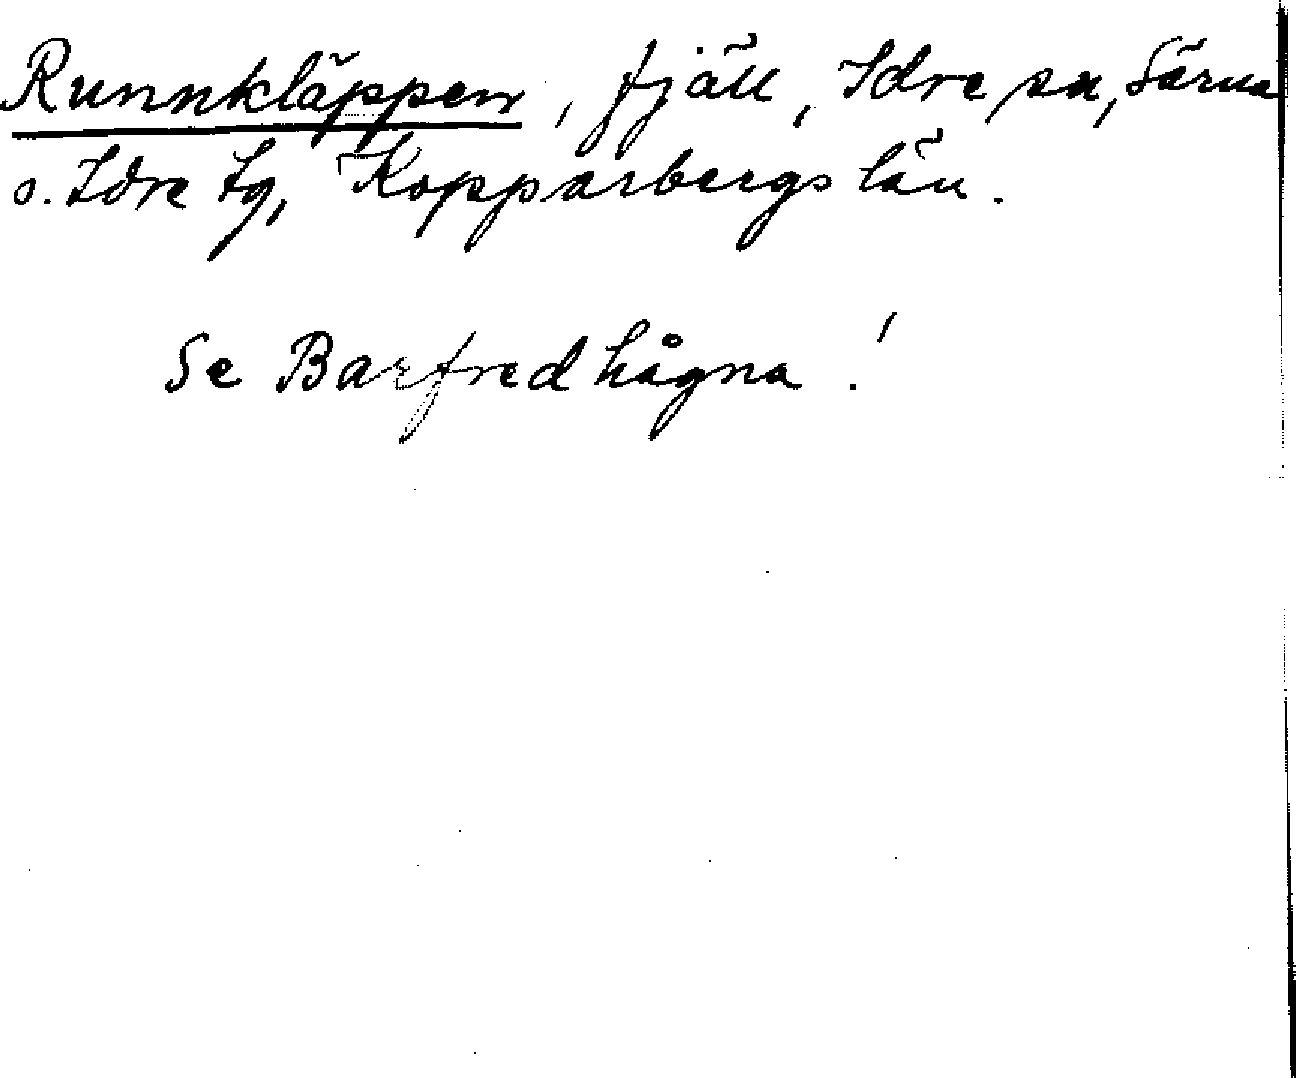 Runnkläppen, fjäll, Idre sn, Särna
o. Idre tg, Kopparbergs län.
Se Barfredhågna!